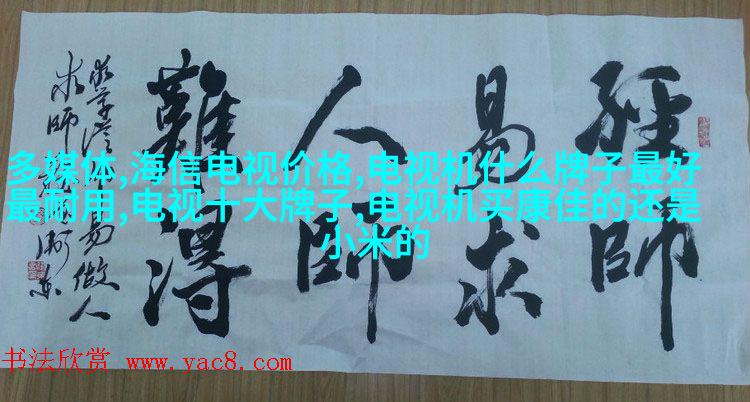 經師
易求
人師
難得
多媒体,海信电视价格,电视机什么牌子最好
最耐用,电视十大牌子,电视机买康佳的还是
小米的
求師
做人
书法欣赏 www.yac8.com